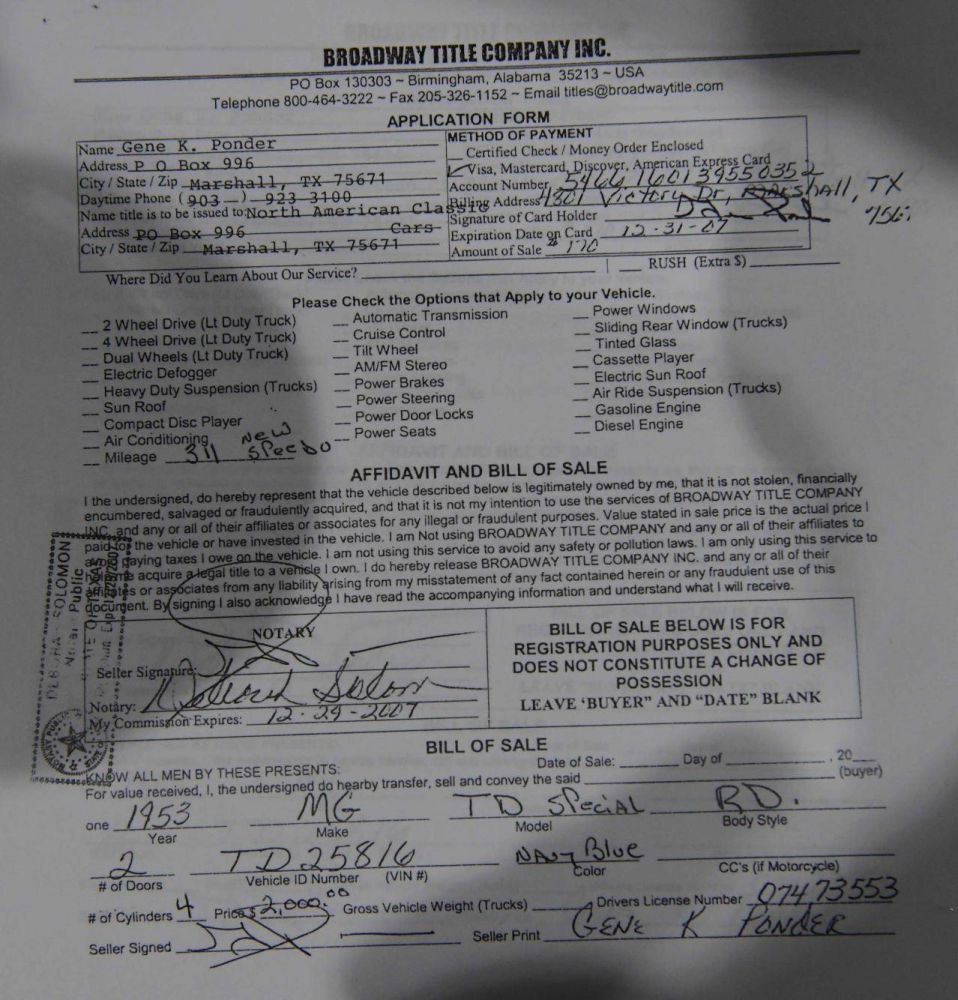 BROADWAY TITLE COMPANY INC.
PO Box 130303 ~ Birmingham, Alabama 35213 ~ USA
Telephone 800-464-3222 ~ Fax 205-326-1152 ~ Email titles@broadwaytitle.com
APPLICATION FORM
Name Gene K. Ponder
Address P O Box 996
City / State / Zip Marshall, TX 75671
Daytime Phone (903 ) 923 3100
Name title is to be issued to: North American Classic
Address PO Box 996 Cars
City / State / Zip Marshall, TX 75671
METHOD OF PAYMENT
__ Certified Check / Money Order Enclosed
✓ Visa, Mastercard, Discover, American Express Card
Account Number 5466 1601 3955 0352
Billing Address 4801 Victory Dr, Marshall, TX
7567
Signature of Card Holder
Expiration Date on Card 12-31-07
Amount of Sale $ 170
Where Did You Learn About Our Service? ____ RUSH (Extra $) ____
Please Check the Options that Apply to your Vehicle.
__ 2 Wheel Drive (Lt Duty Truck)
__ 4 Wheel Drive (Lt Duty Truck)
__ Dual Wheels (Lt Duty Truck)
__ Electric Defogger
__ Heavy Duty Suspension (Trucks)
__ Sun Roof
__ Compact Disc Player
__ Air Conditioning
__ Mileage 311 New Speedo
__ Automatic Transmission
__ Cruise Control
__ Tilt Wheel
__ AM/FM Stereo
__ Power Brakes
__ Power Steering
__ Power Door Locks
__ Power Seats
__ Power Windows
__ Sliding Rear Window (Trucks)
__ Tinted Glass
__ Cassette Player
__ Electric Sun Roof
__ Air Ride Suspension (Trucks)
__ Gasoline Engine
__ Diesel Engine
AFFIDAVIT AND BILL OF SALE
I the undersigned, do hereby represent that the vehicle described below is legitimately owned by me, that it is not stolen, financially
encumbered, salvaged or fraudulently acquired, and that it is not my intention to use the services of BROADWAY TITLE COMPANY
INC. and any or all of their affiliates or associates for any illegal or fraudulent purposes. Value stated in sale price is the actual price I
paid for the vehicle or have invested in the vehicle. I am Not using BROADWAY TITLE COMPANY and any or all of their affiliates to
avoid paying taxes I owe on the vehicle. I am not using this service to avoid any safety or pollution laws. I am only using this service to
help me acquire a legal title to a vehicle I own. I do hereby release BROADWAY TITLE COMPANY INC. and any or all of their
affiliates or associates from any liability arising from my misstatement of any fact contained herein or any fraudulent use of this
document. By signing I also acknowledge I have read the accompanying information and understand what I will receive.
SOLOMON
Public
OF TEXAS
NOTARY
Seller Signature:
Notary: Deborah Solomon
My Commission Expires: 12-29-2007
BILL OF SALE BELOW IS FOR
REGISTRATION PURPOSES ONLY AND
DOES NOT CONSTITUTE A CHANGE OF
POSSESSION
LEAVE 'BUYER" AND "DATE" BLANK
BILL OF SALE
Date of Sale: ____ Day of ____, 20__
KNOW ALL MEN BY THESE PRESENTS:
For value received, I, the undersigned do hearby transfer, sell and convey the said ____ (buyer)
one 1953 MG TD Special RD.
Year Make Model Body Style
2 TD25816 Navy Blue
# of Doors Vehicle ID Number (VIN #) Color CC's (if Motorcycle)
# of Cylinders 4 Price $ 2,000.00 Gross Vehicle Weight (Trucks) ____ Drivers License Number 07473553
Seller Signed ____ Seller Print GENE K PONDER